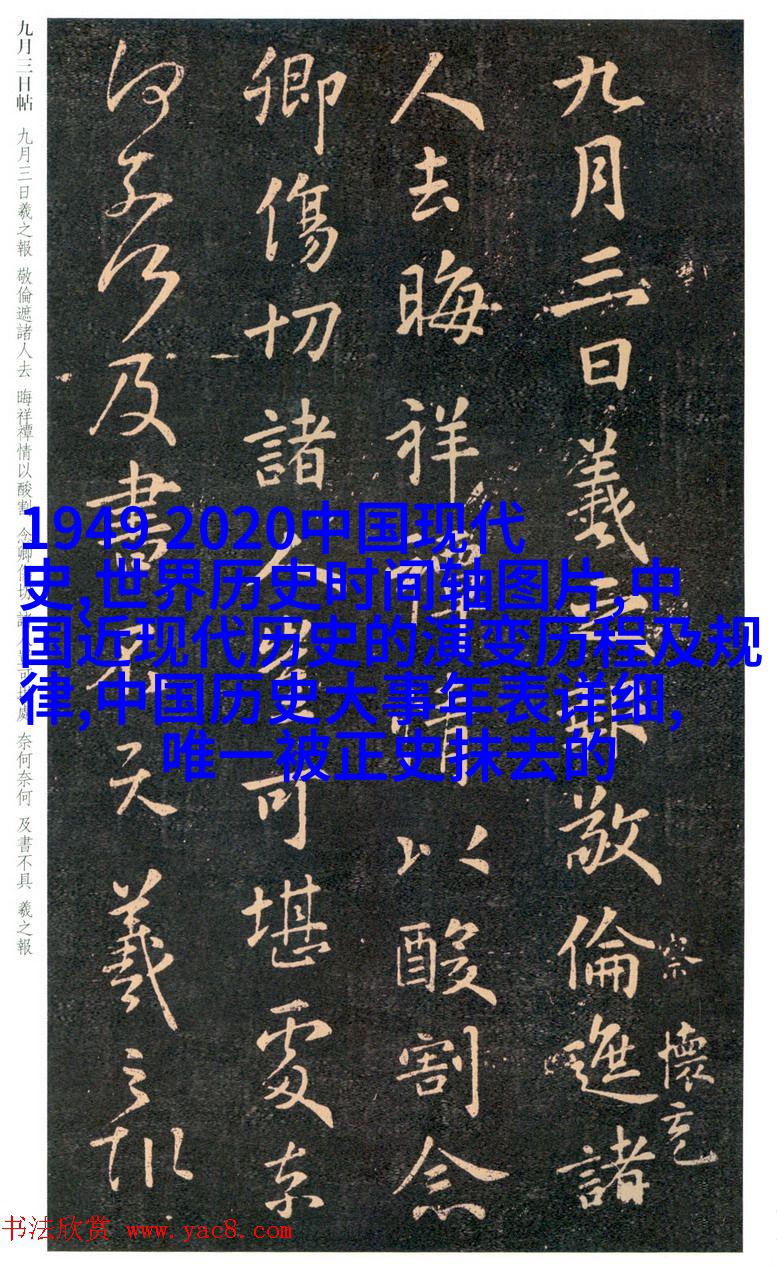 九月三日羲之報敬倫遮諸
察懷充
人去晦祥禫情以酸割念
卿傷切諸人豈可堪處奈
何奈何及書不具羲之報
九月三日帖 九月三日羲之報 敬倫遮諸人去 晦祥禫情以酸割 念卿傷切 諸人豈可堪處 奈何奈何 及書不具 羲之報
1949 2020中国现代
史,世界历史时间轴图片,中
国近现代历史的演变历程及规
律,中国历史大事年表详细,
唯一被正史抹去的
书法欣赏 www.yac8.com